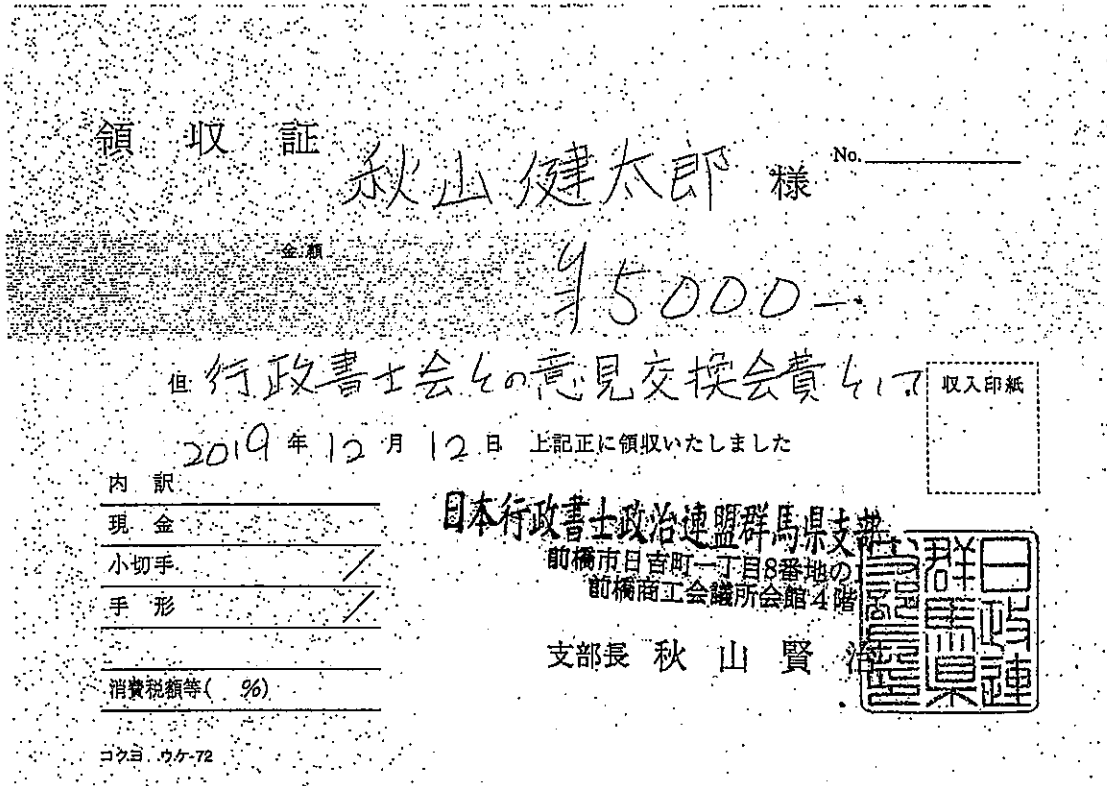 領収証
秋山健太郎 様
No.
金額
¥5000-
但 行政書士会との意見交換会費として
収入印紙
2019年12月12日 上記正に領収いたしました
内訳
現金
小切手
手形
消費税額等( %)
日本行政書士政治連盟群馬県支部
前橋市日吉町一丁目8番地の1
前橋商工会議所会館4階
支部長 秋山賢治
日政連
群馬県
コクヨ ウケ-72